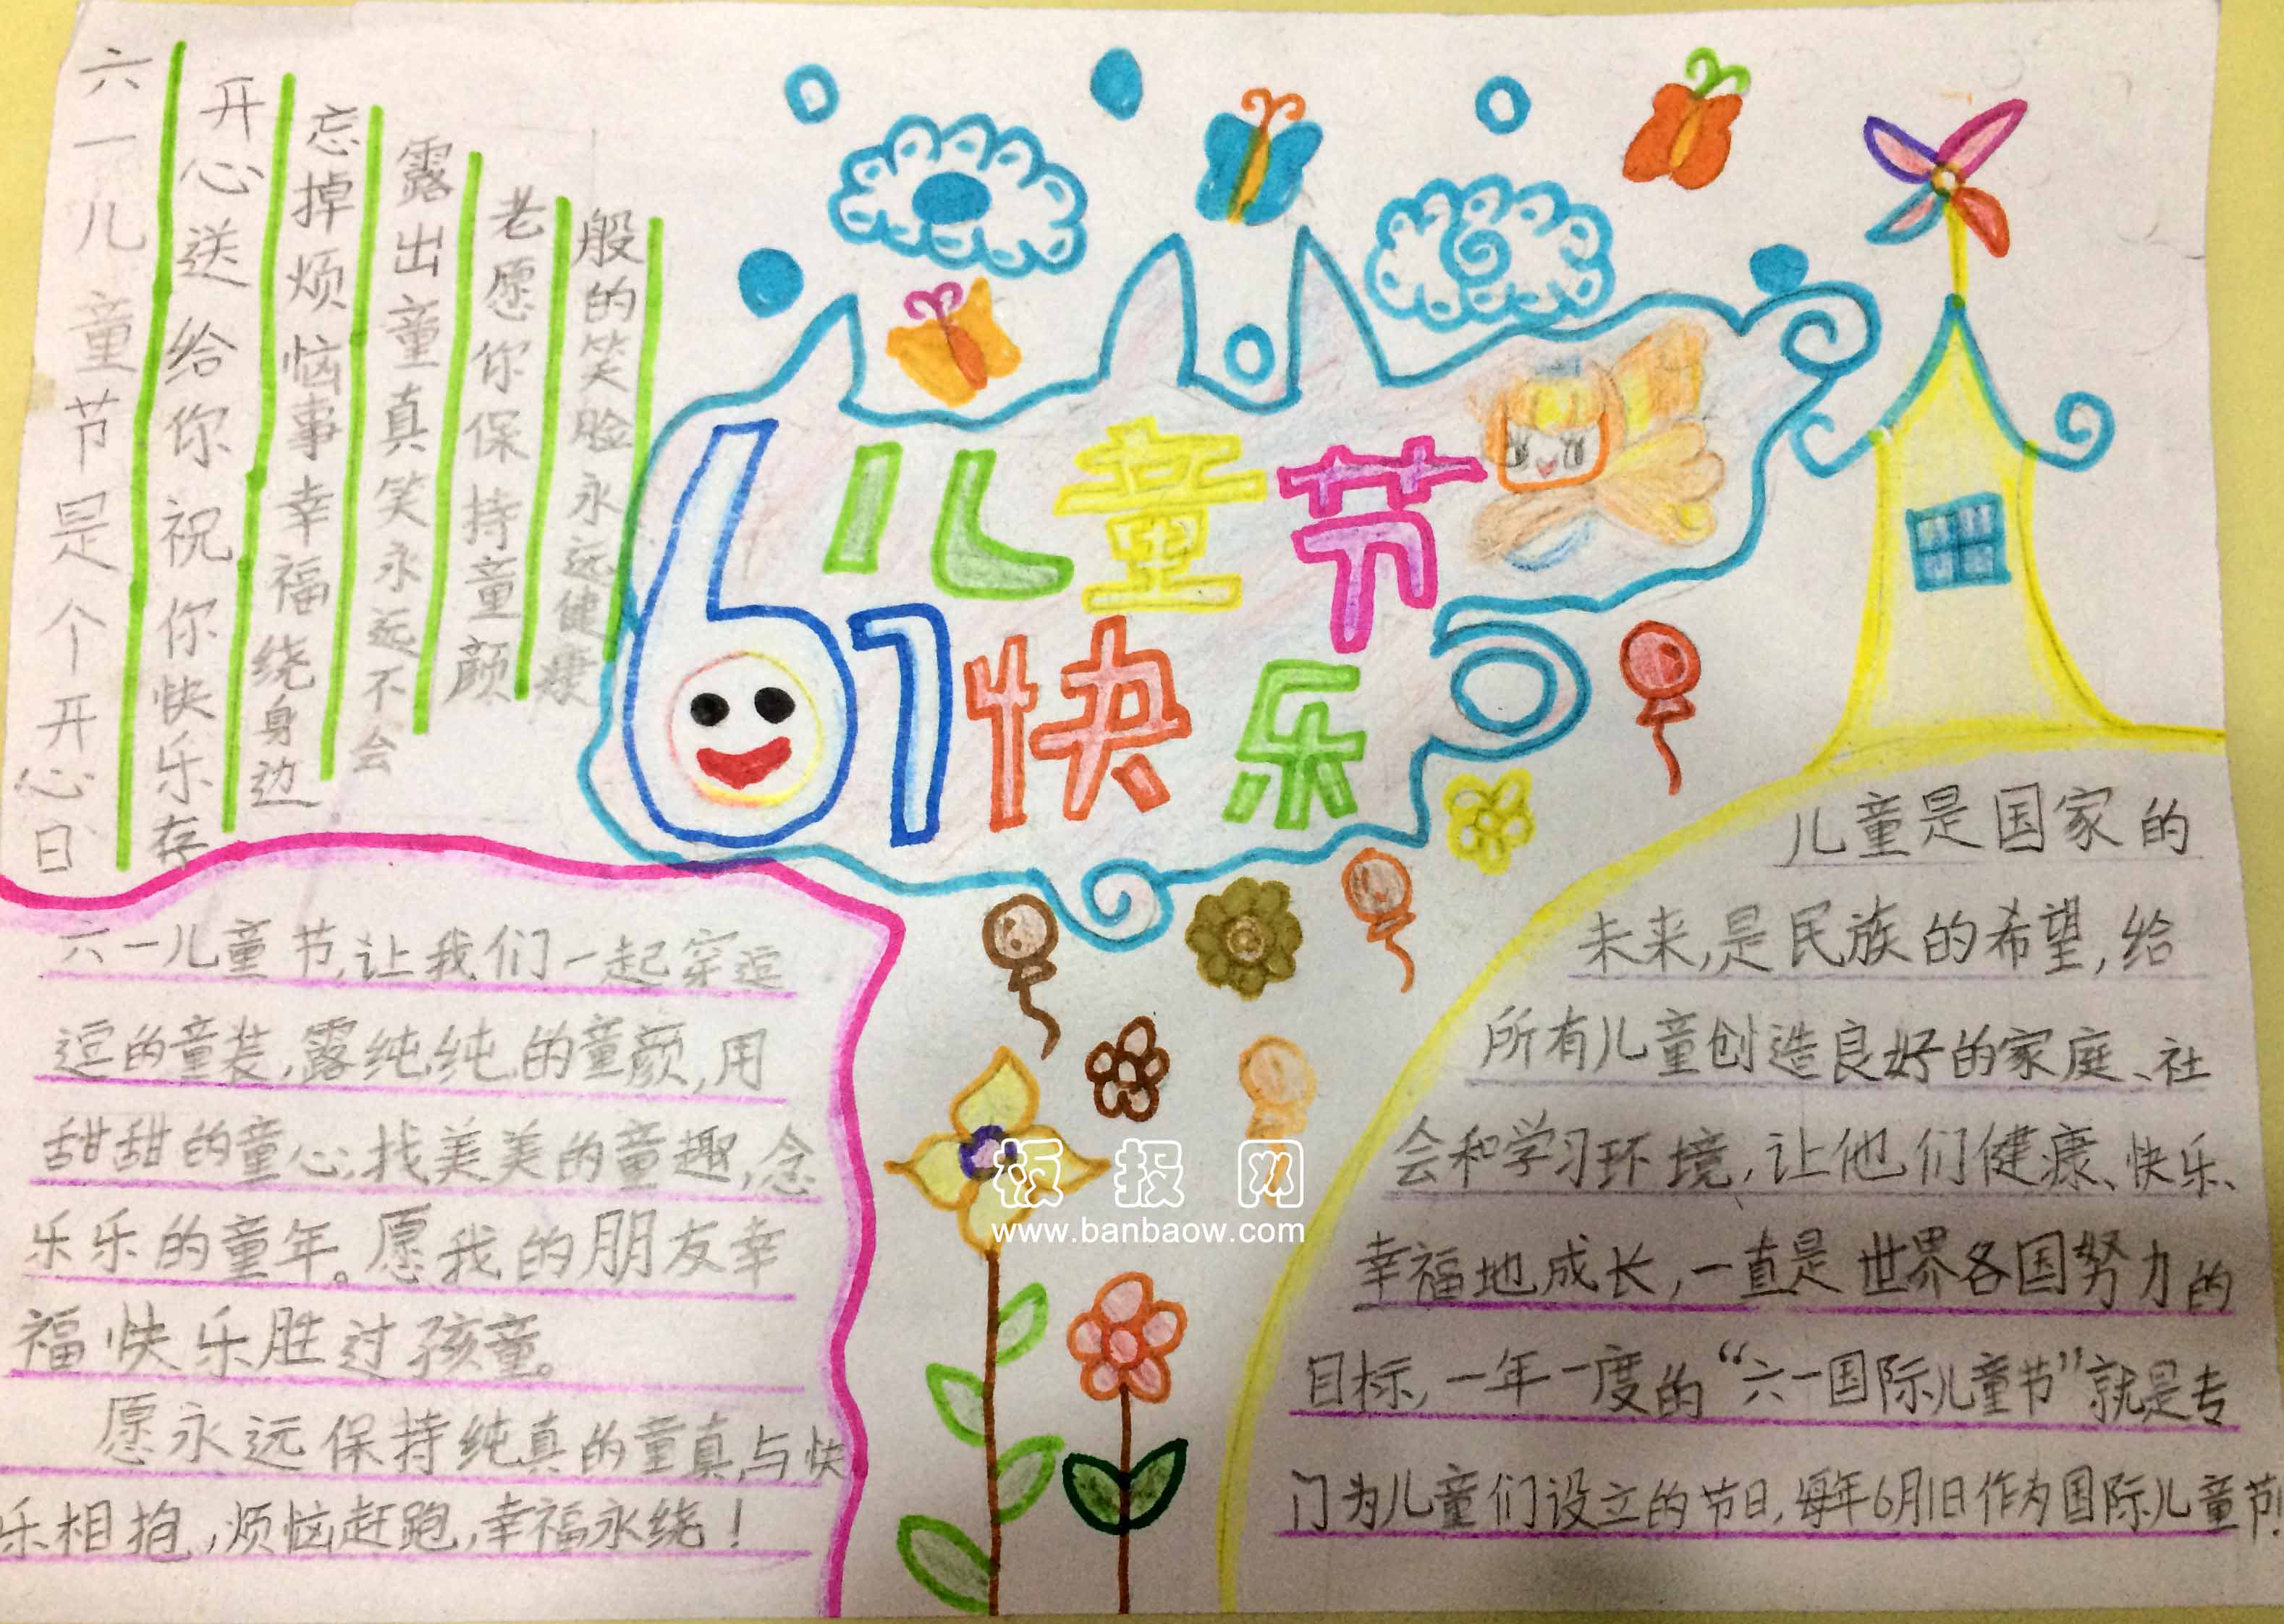 六一儿童节是个开心日
开心送给你祝你快乐存
忘掉烦恼事幸福绕身边
露出童真笑永远不会
老愿你保持童颜
般的笑脸永远健康
61儿童节
快乐
六一儿童节,让我们一起穿逗
逗的童装,露纯纯的童颜,用
甜甜的童心,找美美的童趣,念
乐乐的童年。愿我的朋友幸
福快乐胜过孩童。
愿永远保持纯真的童真,与快
乐相抱,烦恼赶跑,幸福永绕!
儿童是国家的
未来,是民族的希望,给
所有儿童创造良好的家庭、社
会和学习环境,让他们健康、快乐、
幸福地成长,一直是世界各国努力的
目标,一年一度的“六一国际儿童节”就是专
门为儿童们设立的节日,每年6月1日作为国际儿童节!
板报网
www.banbaow.com